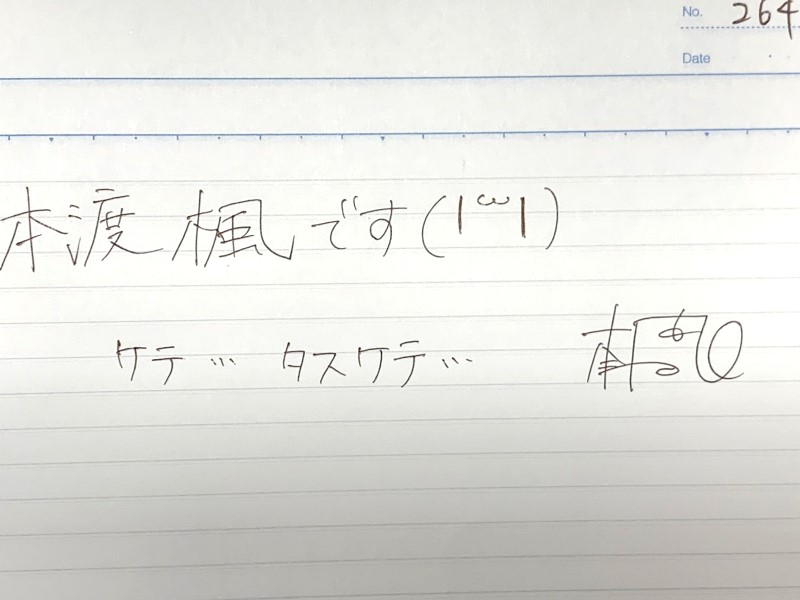 No. 264
Date
本渡楓です(I ω I)
ケテ… タスケテ…